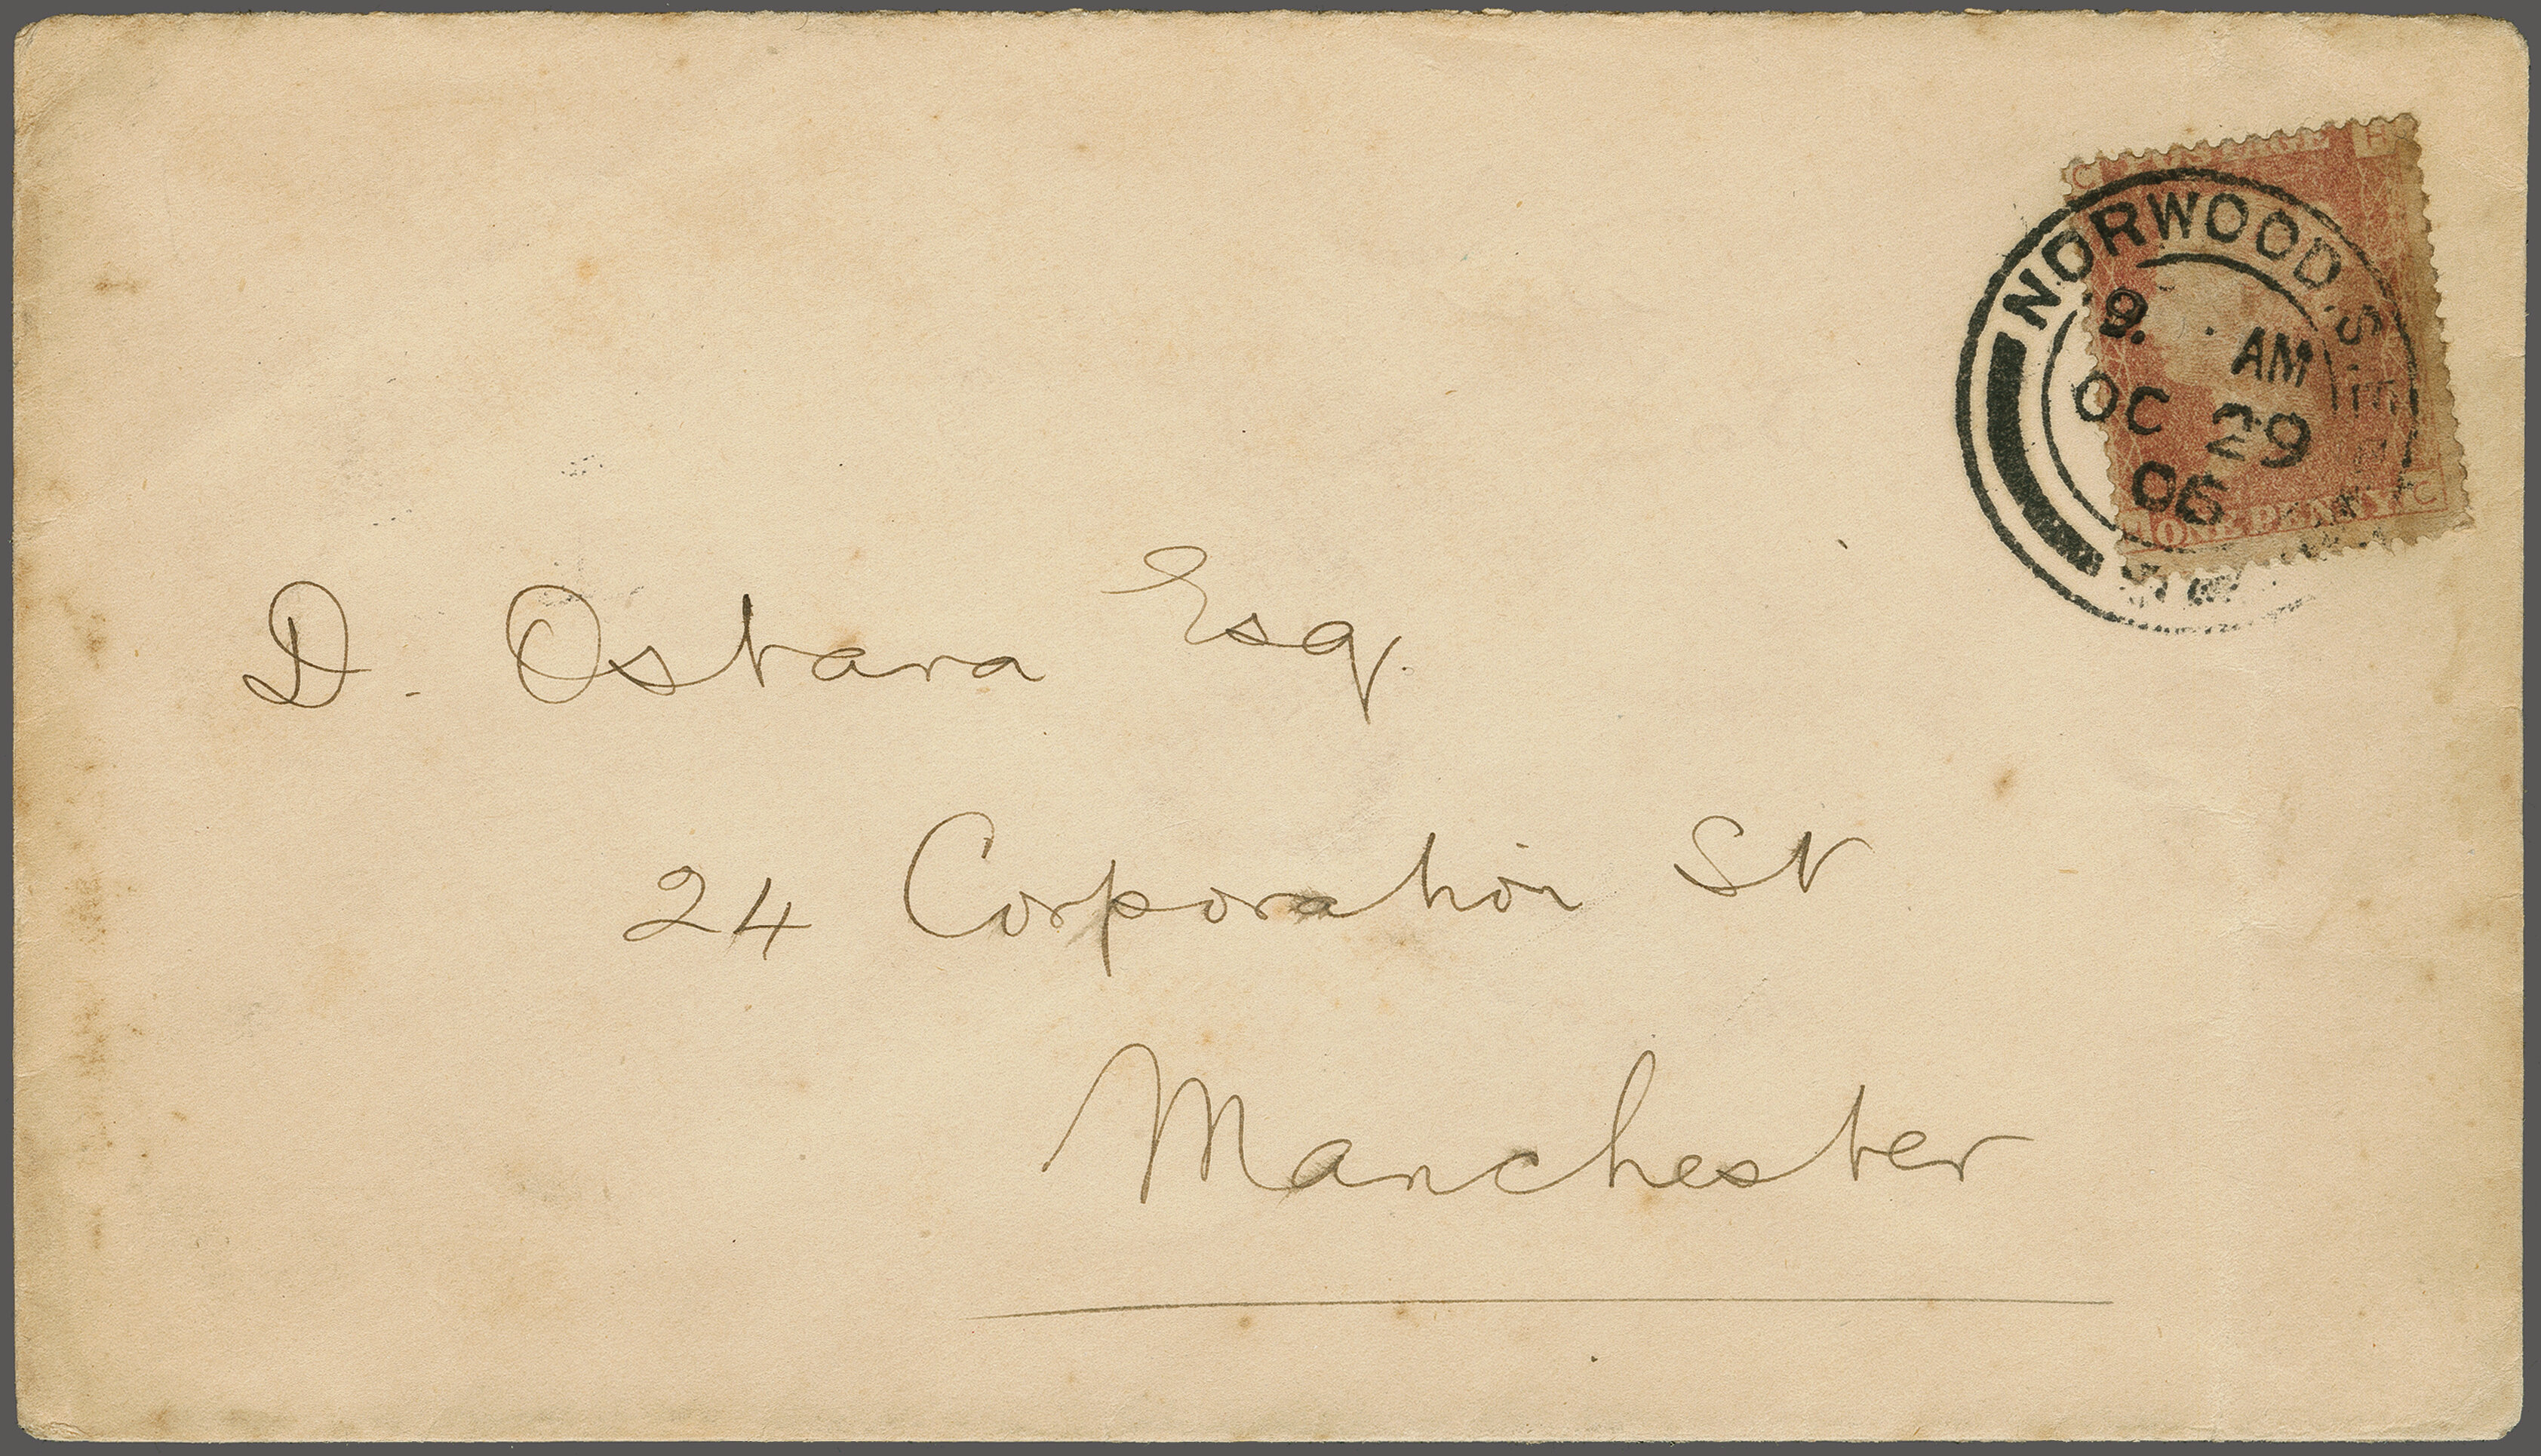 POSTAGE
C
NORWOOD. S
9. AM
OC 29
06
ONE PENNY
C
D. Ostara Esq.
24 Corporation St
Manchester